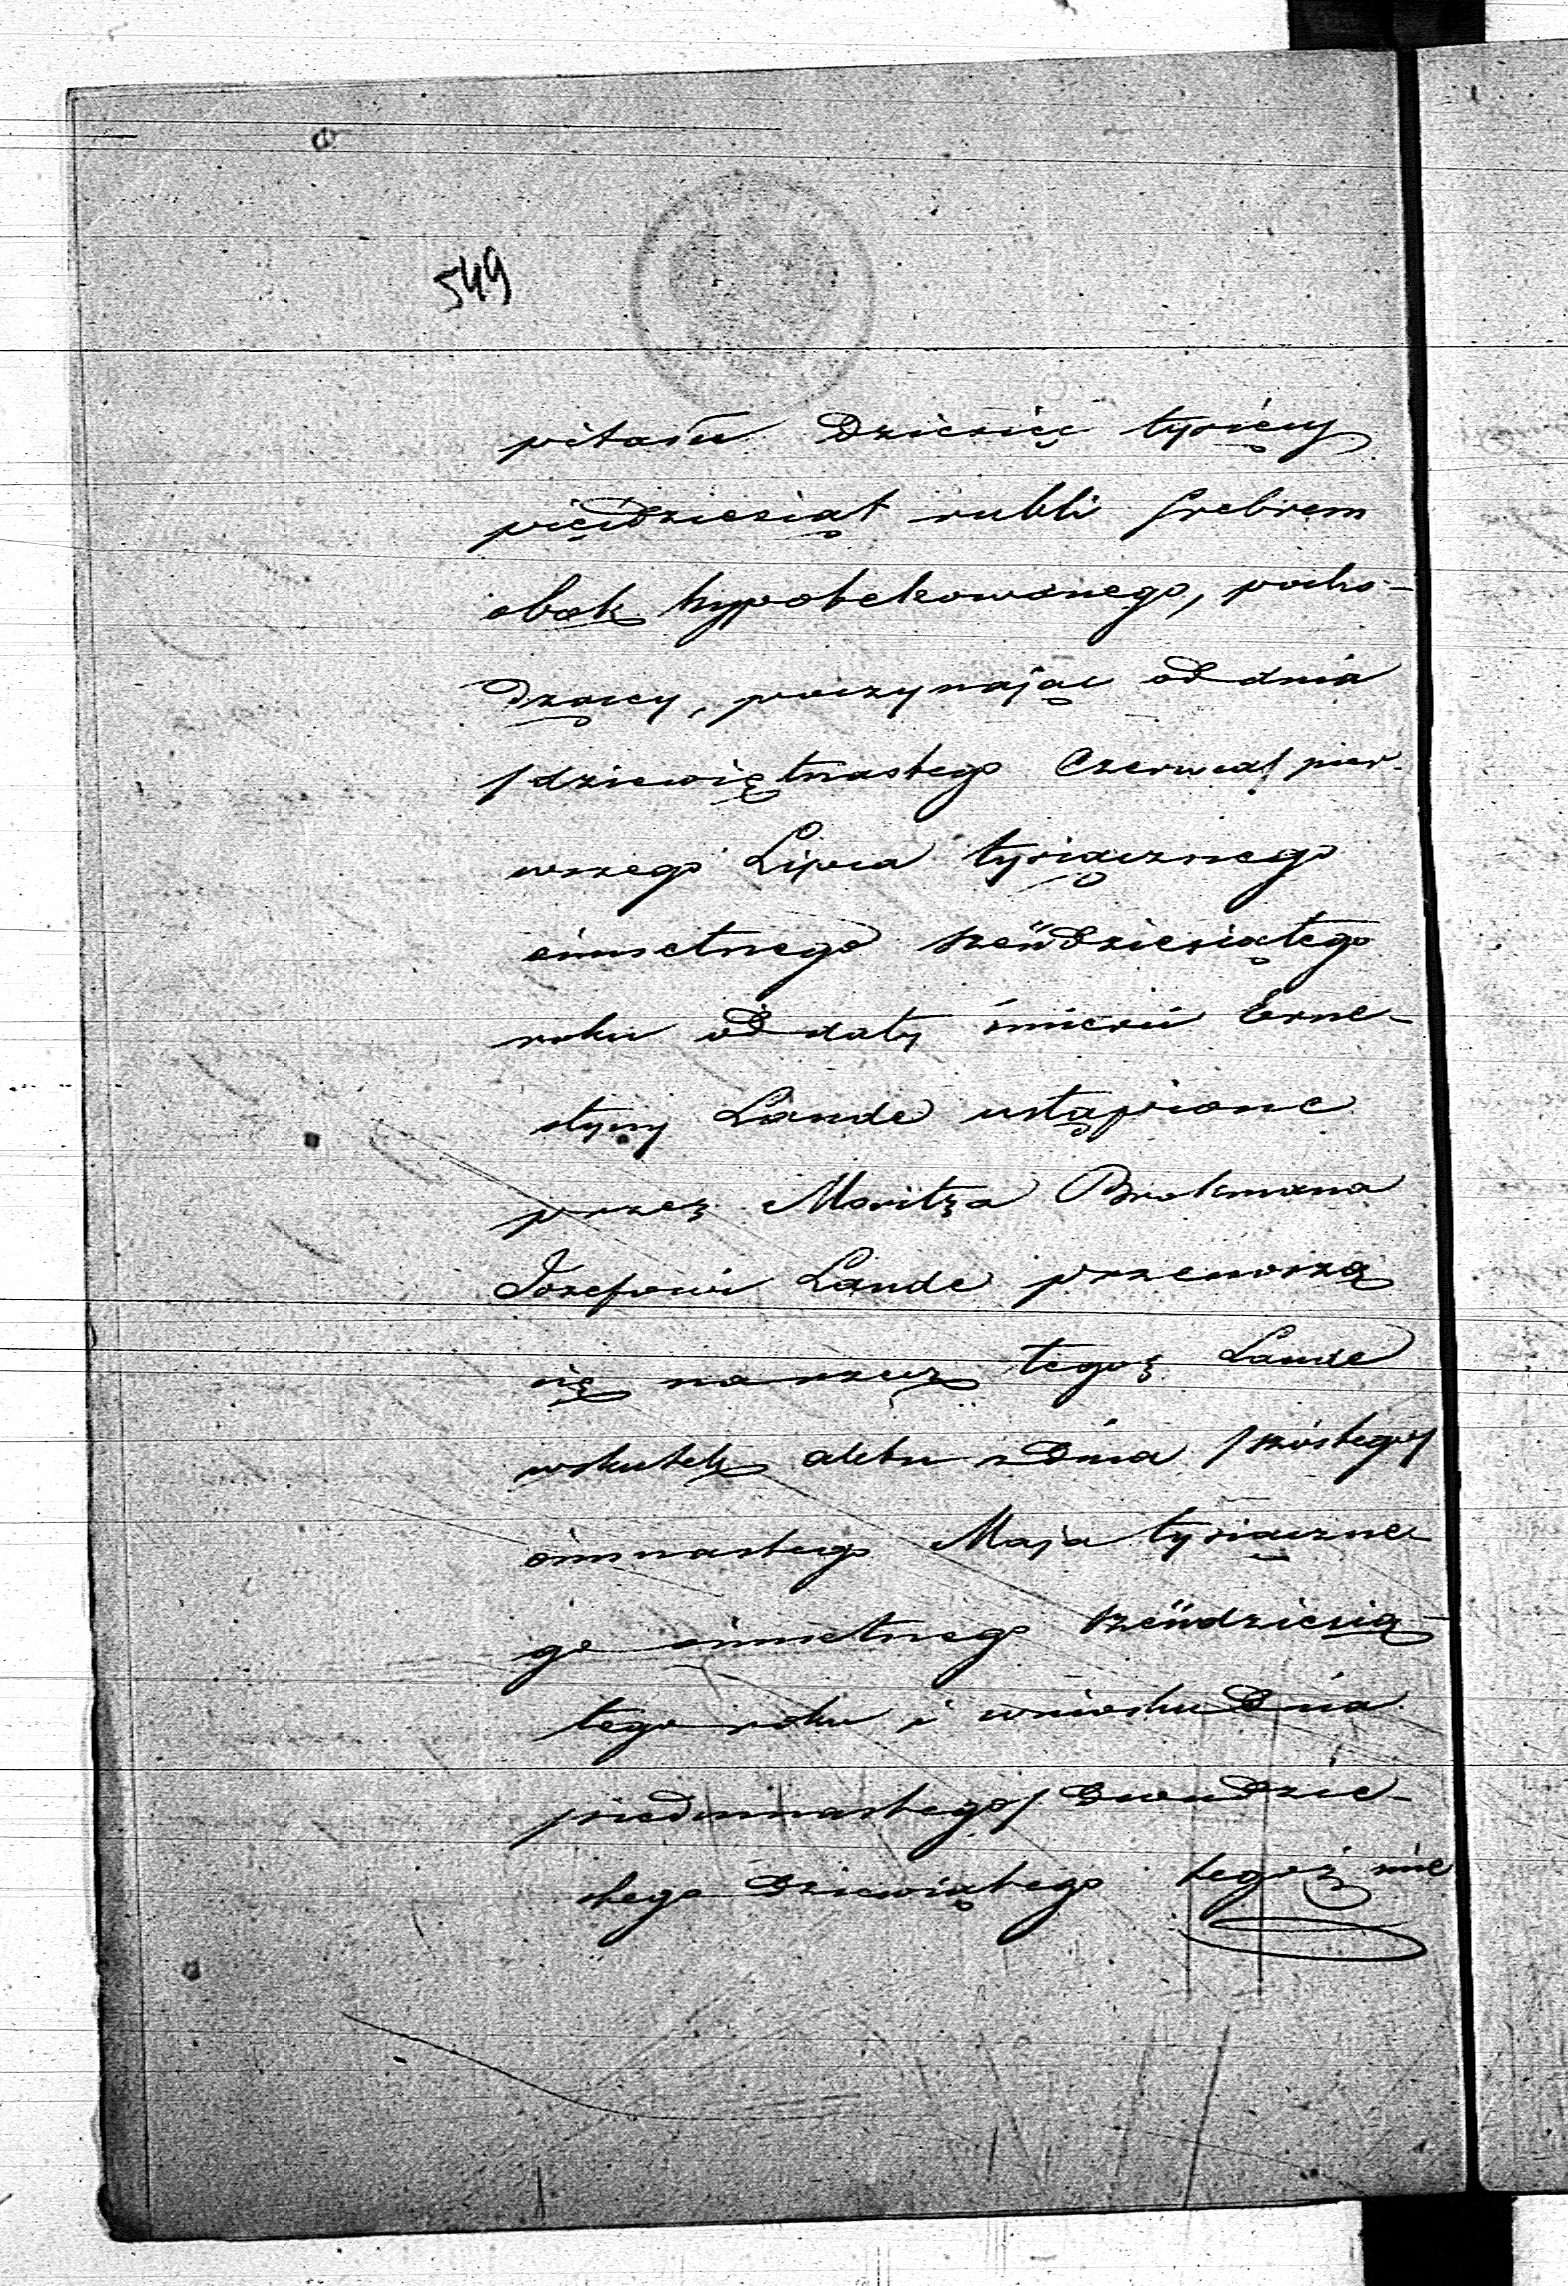 549
pitału Dziesięć tysięcy
pięćdziesiąt rubli srebrem
obok hypotekowanego, pocho-
dzący, poczynając od dnia
/dziewiętnastego Czerwca/ pier-
wszego Lipca tysiącznego
ośmsetnego sześćdziesiątego
roku od daty śmierci Erne-
styny Lande ustąpione
przez Moritza Brokmana
Jozefowi Lande przenoszą
się na rzecz tegoż Lande
wskutek aktu z dnia /szóstego/
ośmnastego Maja tysiączne-
go ośmsetnego sześćdziesią-
tego roku i wniosku z dnia
/siedmnastego/ dwudzie-
stego dziewiątego tegoż mie